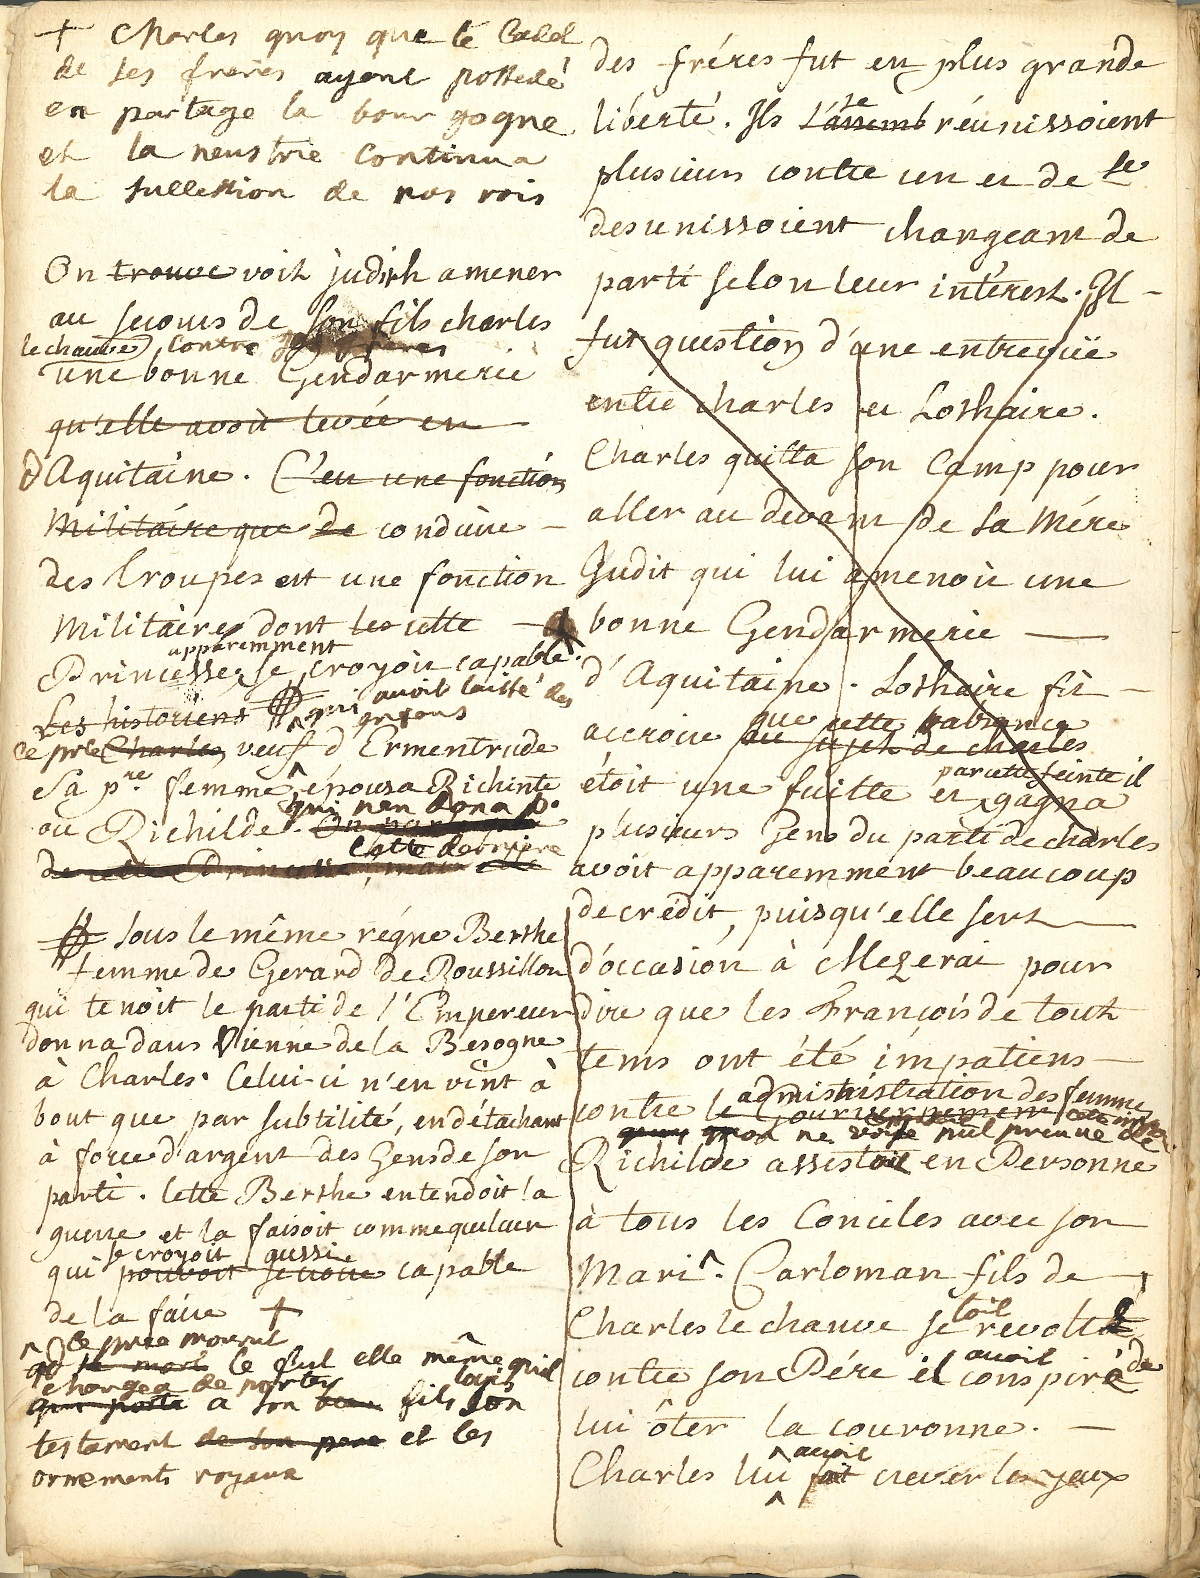 + Charles quoy que le Cadet
de ses freres ayent possedé
en partage la bourgogne
et la neustrie continua
la sullession de nos rois
On trouve voit judith amener
au secours de son fils charles
le chauve, contre ses freres
une bonne Gendarmerie
qu'elle avoit levée en
d'Aquitaine. C'en une fonction
Militaire que de conduire -
des Troupes est une fonction
Militaire dont les cette -
apparemment
Princesse, se croyoit capable.
Les historiens qui avoit laissé des
garsons
ce prce Charles veuf d'Ermentrude
Sa p.re femme, épousa Richinte
qui n'en dona p.
ou Richilde. On
cette derniere
de cette Princesse, mais
Sous le même régne Berthe
femme de Gerard de Roussillon
qui tenoit le parti de l'Empereur
donna dans Vienne de la Besogne
à Charles. Celui-ci n'en vint à
bout que par subtilité, en détachant
à force d'argent des Gens de son
parti. Cette Berthe entendoit la
guerre et la faisoit comme quelcun
se croyoit aussi
qui pouvoit se croire capable
de la faire +
ce prce mourut
se mort ce fut elle même quil
chargea de porter Louis
qui porta a son fils son
testament de son pere et les
ornements royaux
des fréres fut en plus grande
se
liberté. Ils s'assemb réunissoient
plusieurs contre un et de se
desunissoient changeant de
parti selon leur intérest. Il -
fut question d'une entrevuë
entre charles et Lothaire.
Charles quitta son Camp pour
aller au devant de sa Mére
Judit qui lui amenoit une
bonne Gendarmerie —
d'Aquitaine. Lothaire fit -
que cette absence
accroire au sujet de charles
par cette feinte il
étoit une fuitte et gagna
plusieurs Gens du parti de charles
avoit apparemment beaucoup
de crédit, puisqu'elle sert
d'occasion à Mezerai pour
dire que les François de tout
tems ont été impatiens -
administration des femmes
contre le Gouvernement
mon ne voye nul preuve de
Richilde assistoit en Personne
à tous les Conciles avec son
Mari. Carloman fils de
toit
Charles le chauve se revolta
avoit de
contre son Pére il conspiré
lui ôter la couronne. -
avoit
Charles lui fait crever les yeux